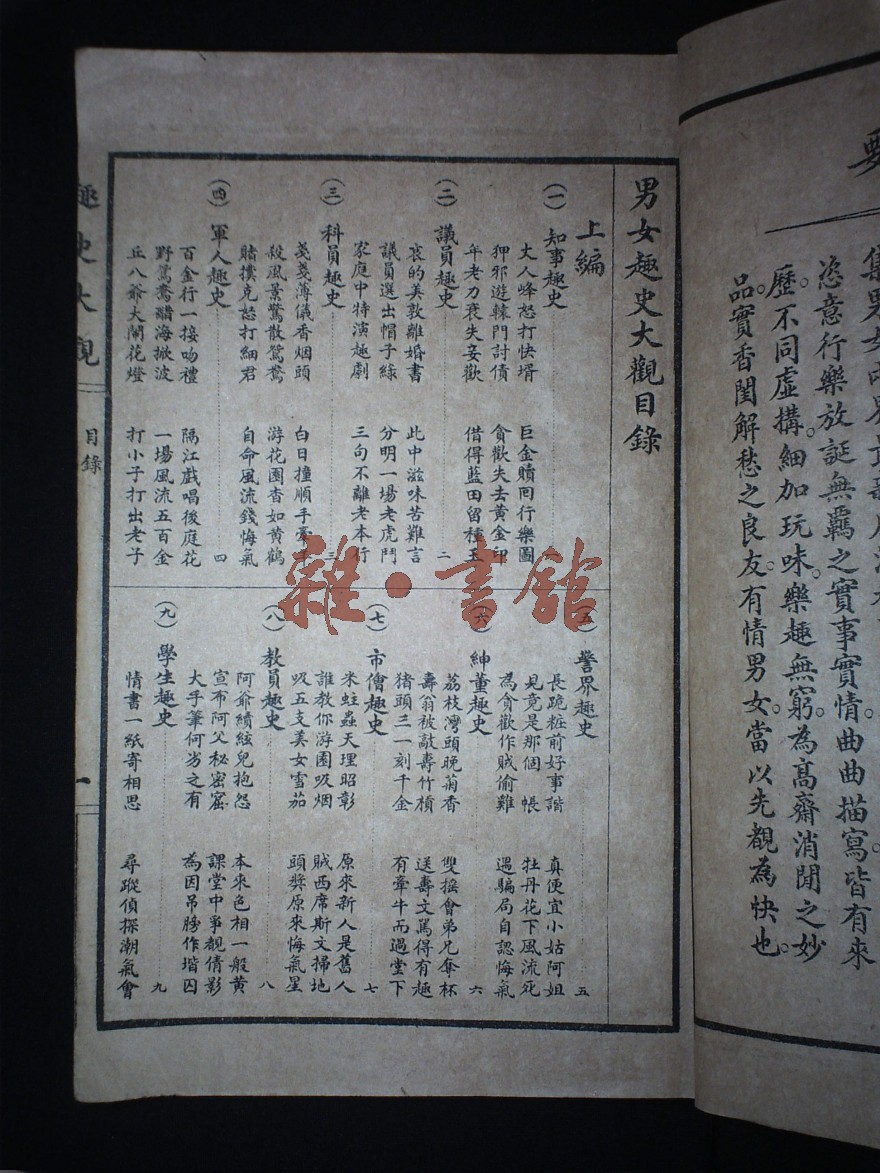 集男女
恣意行樂放誕無羈之實事實情曲曲描寫皆有來
歷不同虛構細加玩味樂趣無窮為高齋消閒之妙
品實香閨解愁之良友有情男女當以先覩為快也
男女趣史大觀目錄
上編
(一) 知事趣史 一
大人峰怒打快壻 巨金贖回行樂圖
狎邪遊轅門討債 貪歡失去黃金印
年老力衰失妾歡 借得藍田留種玉
(二) 議員趣史 二
哀的美敦離婚書 此中滋味苦難言
議員選出帽子綠 分明一場老虎鬥
家庭中特演趣劇 三句不離老本行
(三) 科員趣史 三
戔戔薄儀香烟頭 白日撞順手牽羊
殺風景驚散鴛鴦 游花園杳如黃鶴
賭撲克怒打細君 自命風流錢悔氣
(四) 軍人趣史 四
百金行一接吻禮 隔江戲唱後庭花
野鴛鴦醋海掀波 一場風流五百金
丘八爺大鬧花燈 打小子打出老子
(五) 警界趣史 五
長跪粧前好事諧 真便宜小姑阿姐
見竟是那個帳 牡丹花下風流死
為貪歡作賊偷雞 遇騙局自認悔氣
(六) 紳董趣史 六
荔枝灣頭晚菊香 雙搖會弟兄奪杯
壽翁被敲壽竹槓 送壽文罵得有趣
豬頭三一刻千金 有牽牛而過堂下
(七) 市儈趣史 七
米蛀蟲天理昭彰 原來新人是舊人
誰教你游園吸烟 賊西席斯文掃地
吸五支美女雪茄 頭獎原來悔氣星
(八) 教員趣史 八
阿爺續絃兒抱怨 本來色相一般黃
宣布阿父秘密窟 課堂中爭覩倩影
大手筆何劣之有 為因吊膀作堦囚
(九) 學生趣史 九
情書一紙寄相思 尋蹤偵探潮氣會
趣史大觀
目錄
一
雜·書館